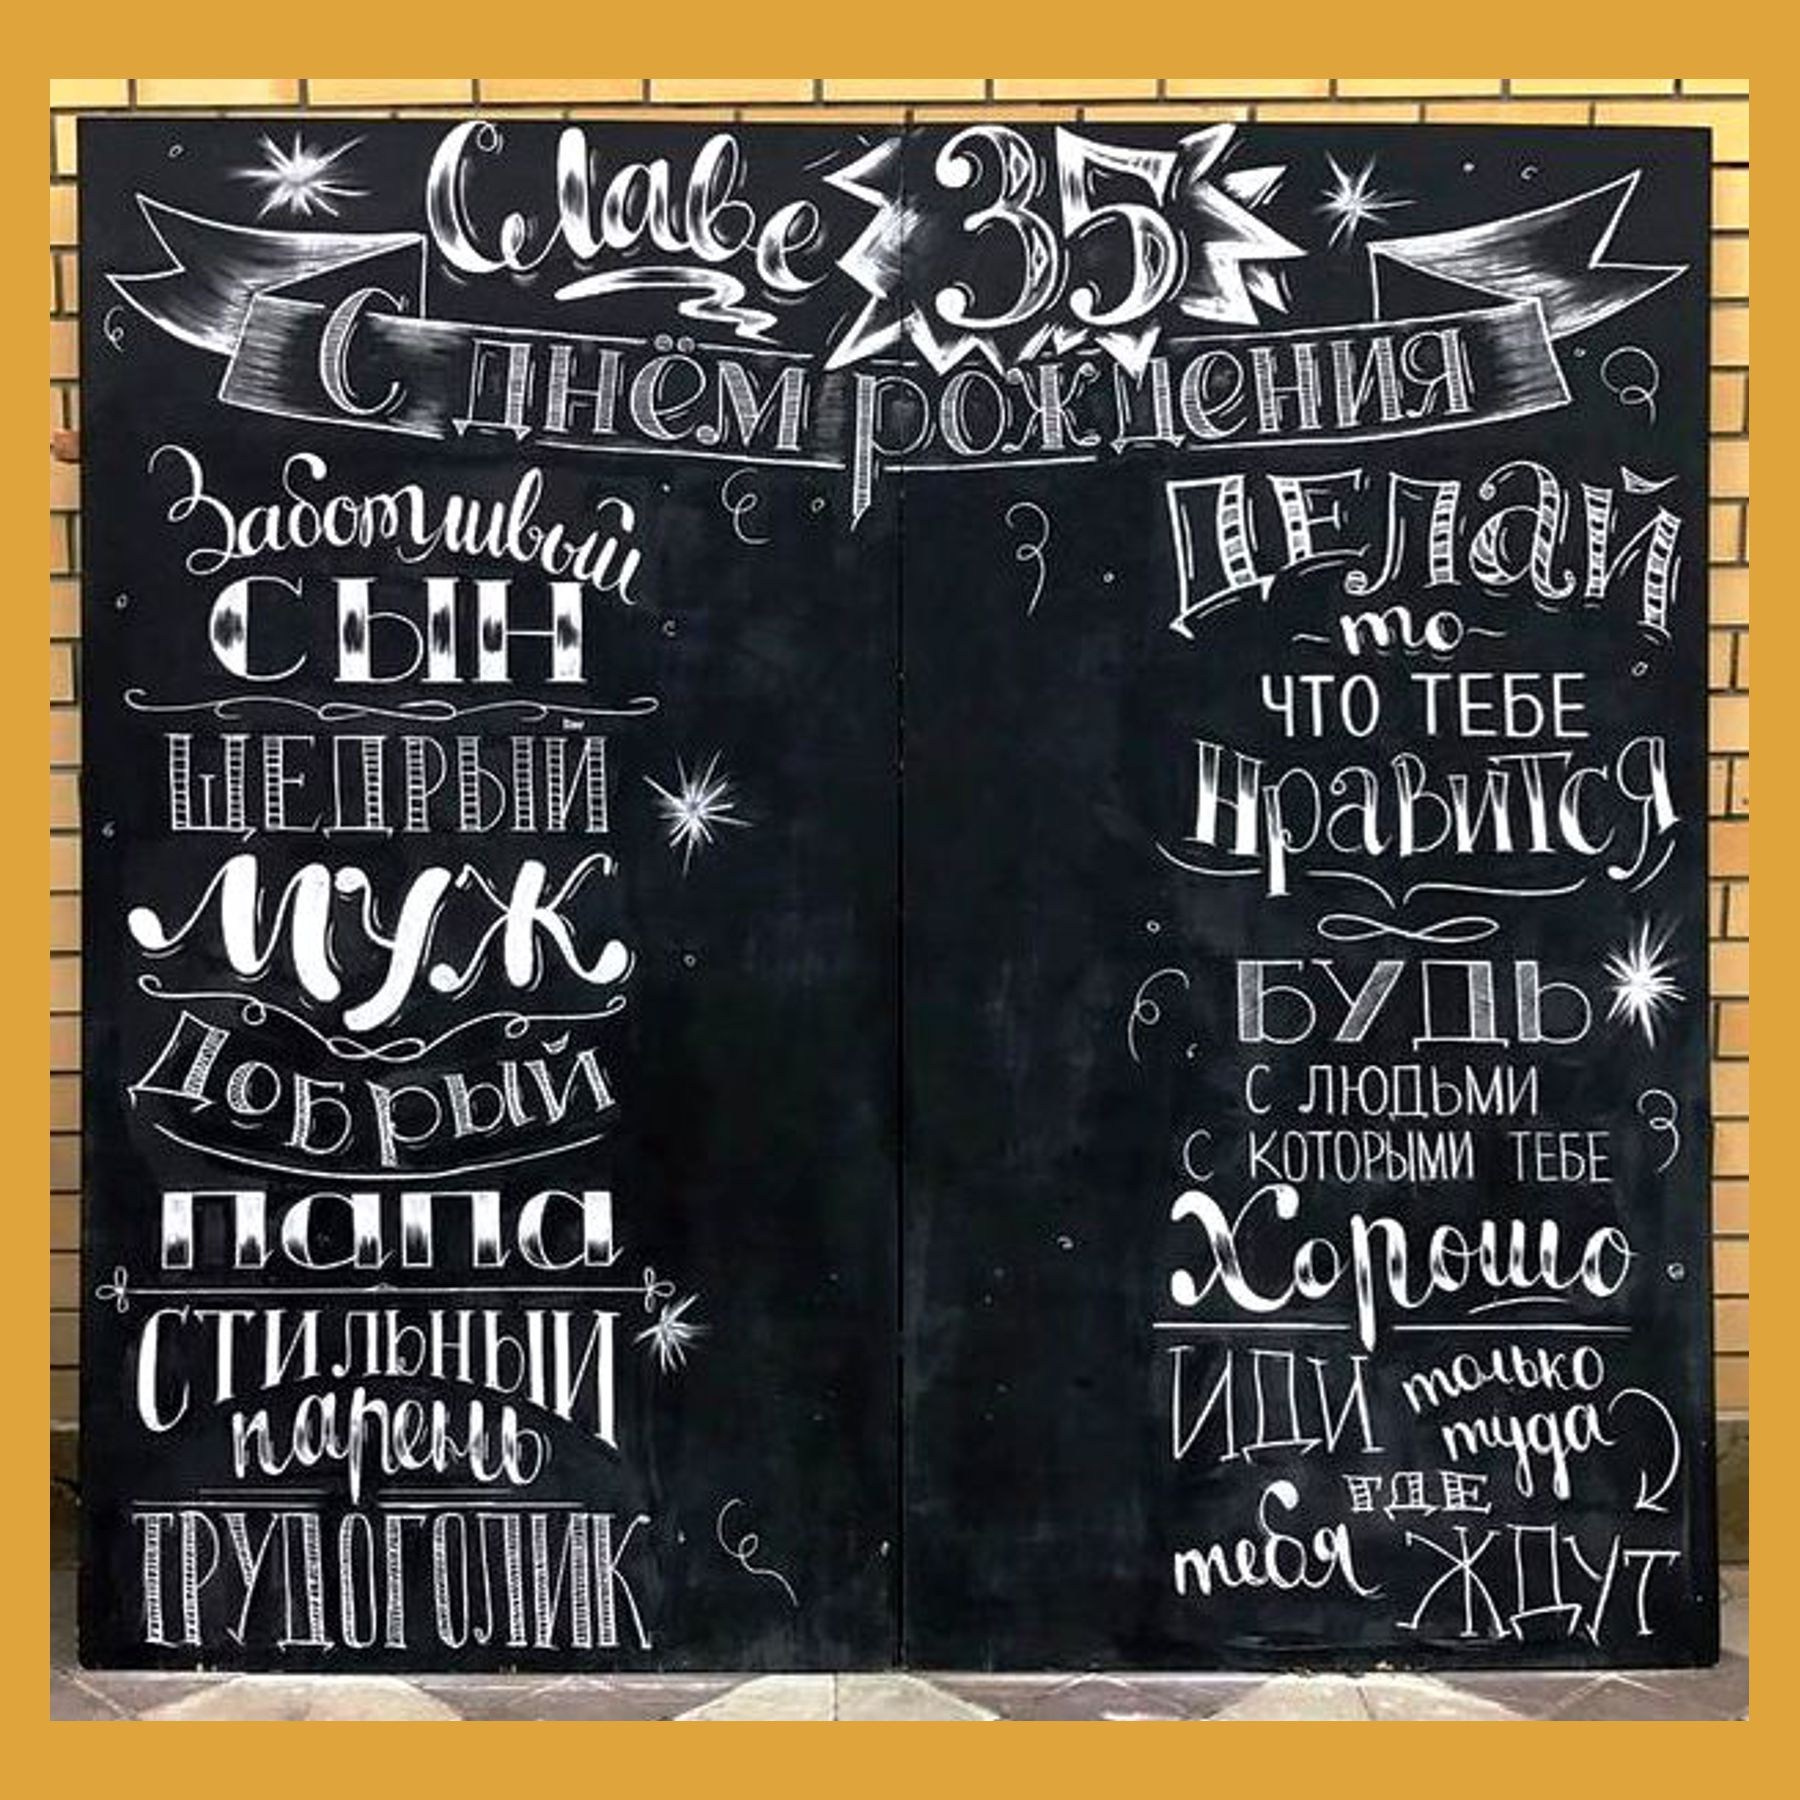 Славе 35
С днём рождения
Заботливый
СЫН
ЩЕДРЫЙ
МУЖ
Добрый
папа
СТИЛЬНЫЙ
парень
ТРУДОГОЛИК
ДЕЛАЙ
~то~
ЧТО ТЕБЕ
Нравится
БУДЬ
С ЛЮДЬМИ
С КОТОРЫМИ ТЕБЕ
Хорошо
ИДИ только
туда
ГДЕ
тебя ЖДУТ